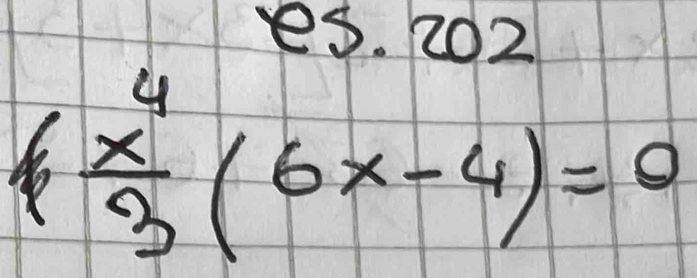 es. 202
x⁴/3 (6x - 4) = 0